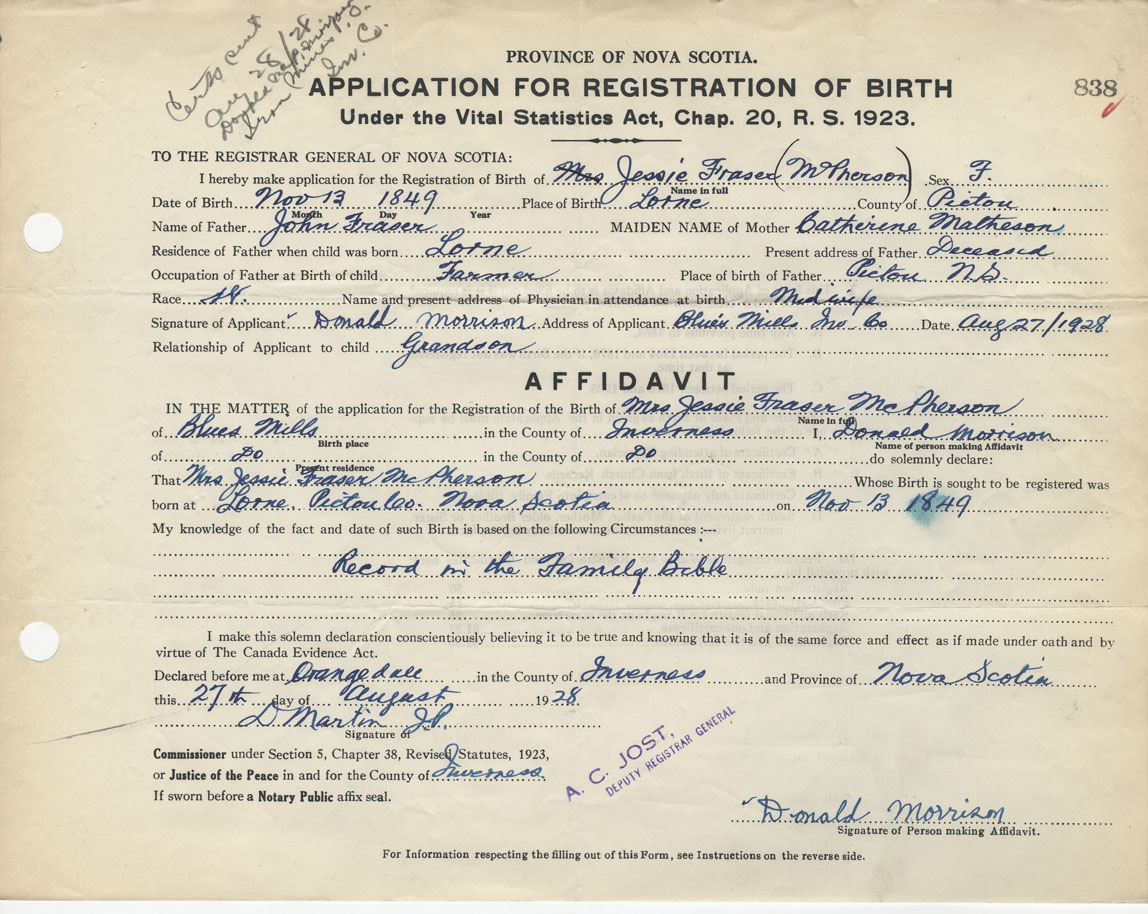 Certs sent
Aug 28/28
Donald Morrison
Iron Mines P.O.
Inv. Co.
PROVINCE OF NOVA SCOTIA.
APPLICATION FOR REGISTRATION OF BIRTH
838
Under the Vital Statistics Act, Chap. 20, R. S. 1923.
TO THE REGISTRAR GENERAL OF NOVA SCOTIA:
I hereby make application for the Registration of Birth of Mrs Jessie Fraser (McPherson) Sex F.
Name in full
Date of Birth Nov 13 1849 Place of Birth Lorne County of Pictou
Month Day Year
Name of Father John Fraser MAIDEN NAME of Mother Catherine Matheson
Residence of Father when child was born Lorne Present address of Father Deceased
Occupation of Father at Birth of child Farmer Place of birth of Father Pictou N.S.
Race Name and present address of Physician in attendance at birth Midwife
Signature of Applicant Donald Morrison Address of Applicant Blues Mills Inv. Co Date Aug 27/1928
Relationship of Applicant to child Grandson
AFFIDAVIT
IN THE MATTER of the application for the Registration of the Birth of Mrs Jessie Fraser McPherson
Name in full
of Blues Mills in the County of Inverness I, Donald Morrison
Birth place Name of person making Affidavit
of Do in the County of Do do solemnly declare:
Present residence
That Mrs Jessie Fraser McPherson Whose Birth is sought to be registered was
born at Lorne Pictou Co. Nova Scotia on Nov 13 1849
My knowledge of the fact and date of such Birth is based on the following Circumstances :---
Record in the Family Bible
I make this solemn declaration conscientiously believing it to be true and knowing that it is of the same force and effect as if made under oath and by
virtue of The Canada Evidence Act.
Declared before me at Orangedale in the County of Inverness and Province of Nova Scotia
this 27th day of August 1928.
D Martin J.P.
Signature of
Commissioner under Section 5, Chapter 38, Revised Statutes, 1923,
or Justice of the Peace in and for the County of Inverness.
If sworn before a Notary Public affix seal.
A. C. JOST,
DEPUTY REGISTRAR GENERAL
Donald Morrison
Signature of Person making Affidavit.
For Information respecting the filling out of this Form, see Instructions on the reverse side.